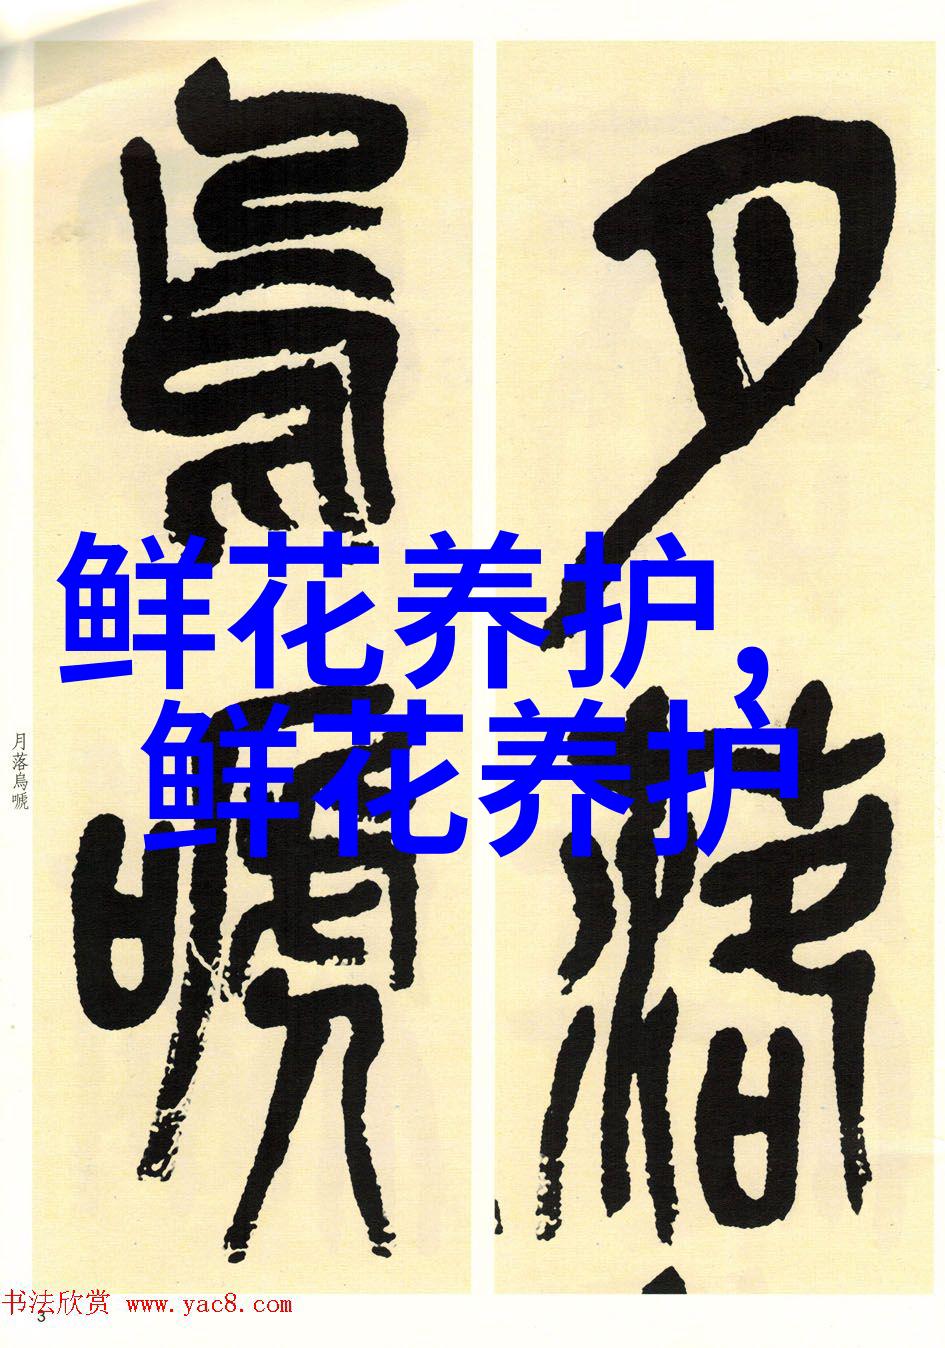 月落
烏嗁
鲜花养护，
鲜花养护
月落烏嗁
书法欣赏 www.yac8.com
3